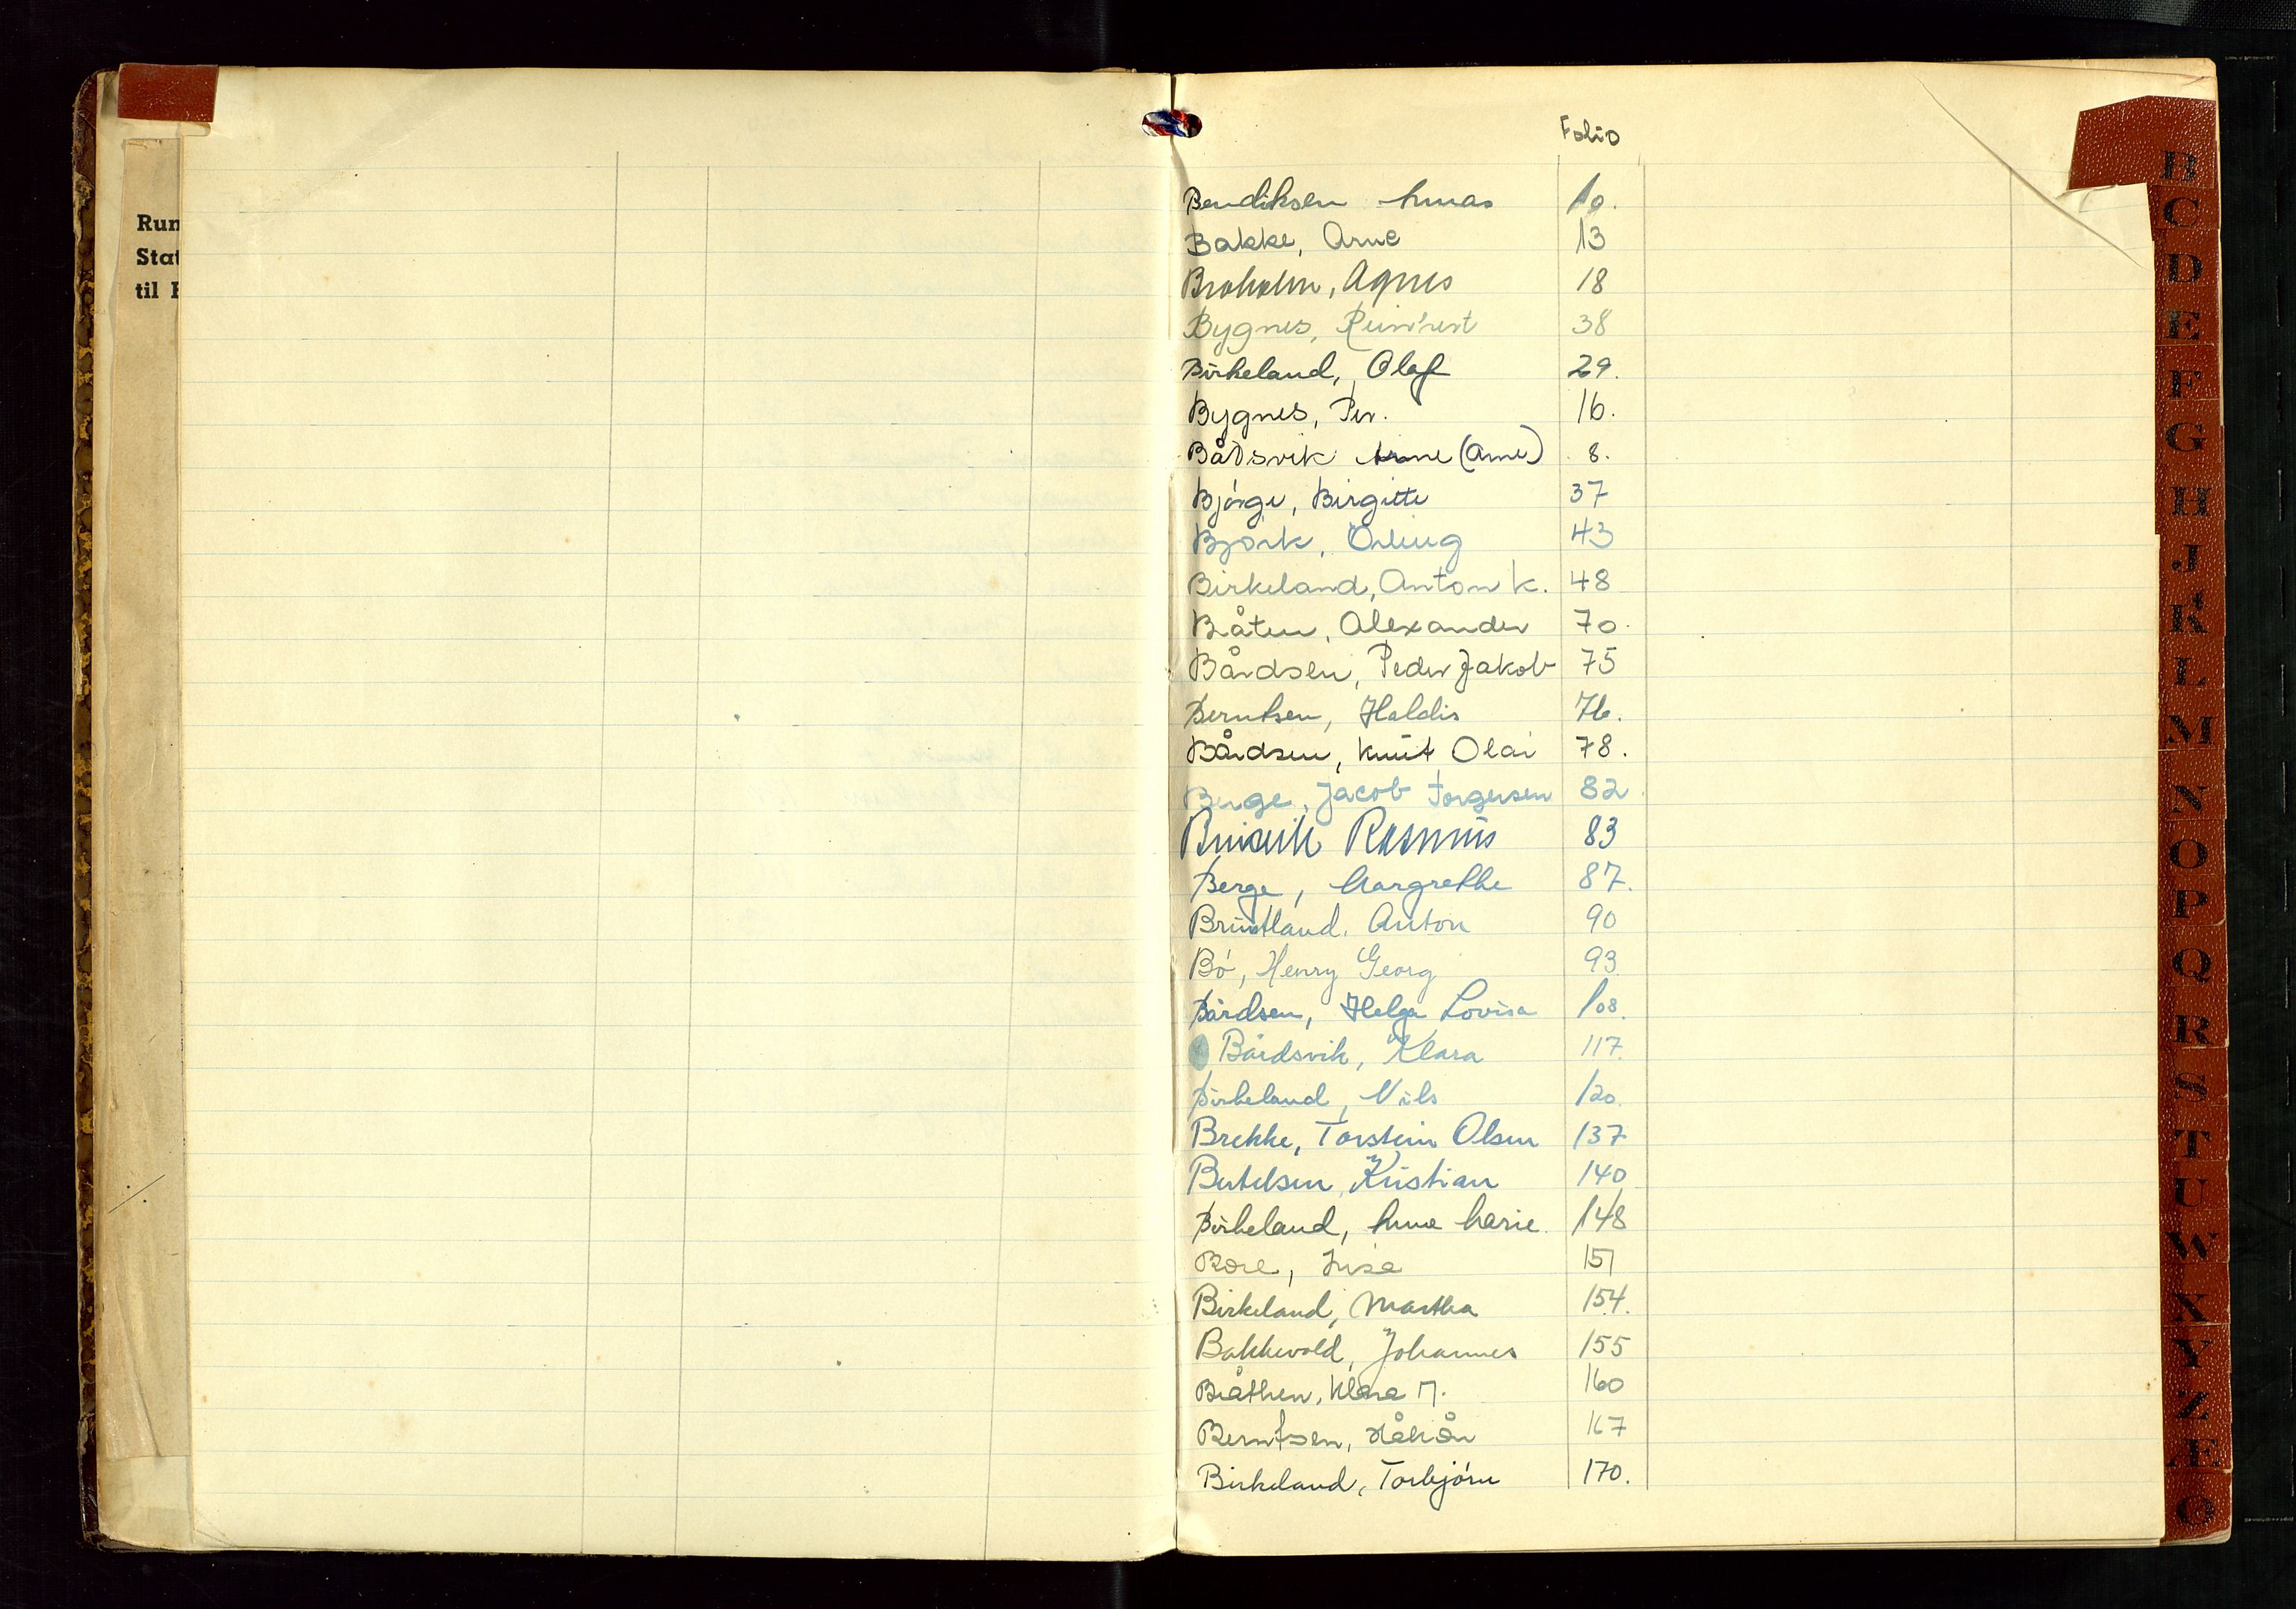 Run
Stat
til
Folio
Bendiksen Annas 10.
Bakke, Arne 13
Broholm, Agnes 18
Bygnes, Reinhert 38
Birkeland, Olaf 29.
Bygnes, Per. 16.
Bådsvik Arne (Arne) 8.
Bjørge, Birgitte 37
Björk, Erling 43
Birkeland, Anton K. 48
Bråten, Alexander 70.
Bårdsen, Peder Jakob 75
Berntsen, Haldis 76.
Bårdsen, Knut Olai 78.
Berge, Jacob Torgersen 82
Rasmus 83
Berge, Margrethe 87.
Bruntland, Anton 90
Bø, Henry Georg 93
Bårdsen, Helga Lovisa 108.
Bårdsvik, Klara 117.
Birkeland, Nils 120.
Brekke, Torstein Olsen 137
Bertelsen, Kristian 140
Birkeland, Anne Marie. 148
Bore, 151
Birkeland, Martha 154.
Bakkevold, Johannes 155
Bråthen, Klara M. 160
Berntsen, Håkon 167
Birkeland, Torbjørn 170.
B
C
D
E
F
G
H
J
K
L
M
N
O
P
Q
R
S
T
U
W
X
Y
Z
Æ
Ø